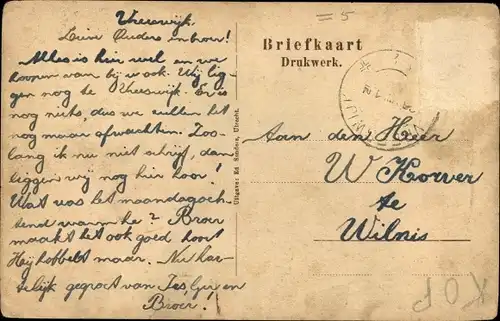 Vreeswijk.
Lieve Ouders en broer!
Alles is hier wel en we
hoopen van bij u ook. Wij lig-
gen nog te Vreeswijk. Er is
nog niets, dus we zullen het
nog maar afwachten. Zoo-
lang ik nu niet schrijf, dan
liggen wij nog hier hoor!
Wat was het maandagoch-
tend warm he? Broer
maakt het ook goed hoor
Hij hobbelt maar. Nu har-
telijk gegroet van Jes, Ger en
Broer!
= 5
Briefkaart
Drukwerk.
Uitgave: Ed Sanders, Utrecht.
Aan den Heer
W Korver
te
Wilnis
KOP